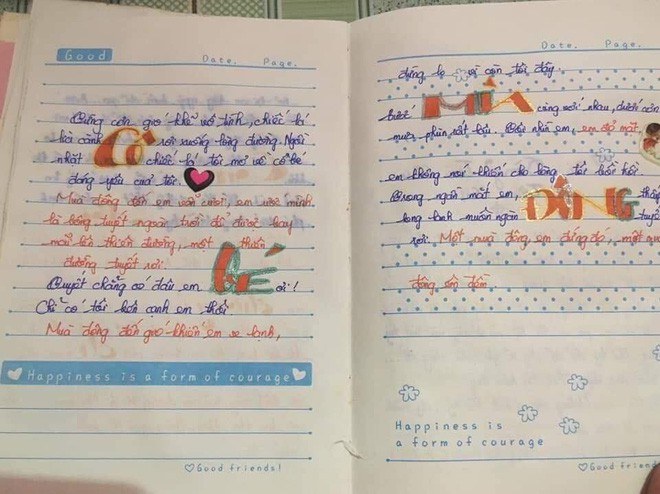 Good
Date.    Page.
Từng cơn gió khẽ vô tình, chiếc lá
lìa cành rơi xuống lòng đường. Ngồi
nhặt chiếc lá tôi mơ về cô bé
đáng yêu của tôi.
Mùa đông đến em vẫn cười, em ước mình
là bông tuyết ngoài trời để được bay
mãi lên thiên đường, một thiên
đường tuyết rơi.
Tuyết chẳng có đâu em BÉ ơi!
Chỉ có tôi bên cạnh em thôi
Mùa đông đến gió khiến em se lạnh,
Happiness is a form of courage
Good friends!
Date.    Page.
đừng lo vì còn tôi đây.
bước MÙA cùng với nhau, dưới cơn
mưa phùn rất lâu. Tôi nhìn em, em đỏ mặt,
em không nói khiến cho lòng tôi bồi hồi
Trong ngần mắt em, ĐÔNG
long lanh muôn ngàn
rơi. Một mùa đông em đứng đó, một
đông êm đềm
Happiness is
a form of courage
Good friends!